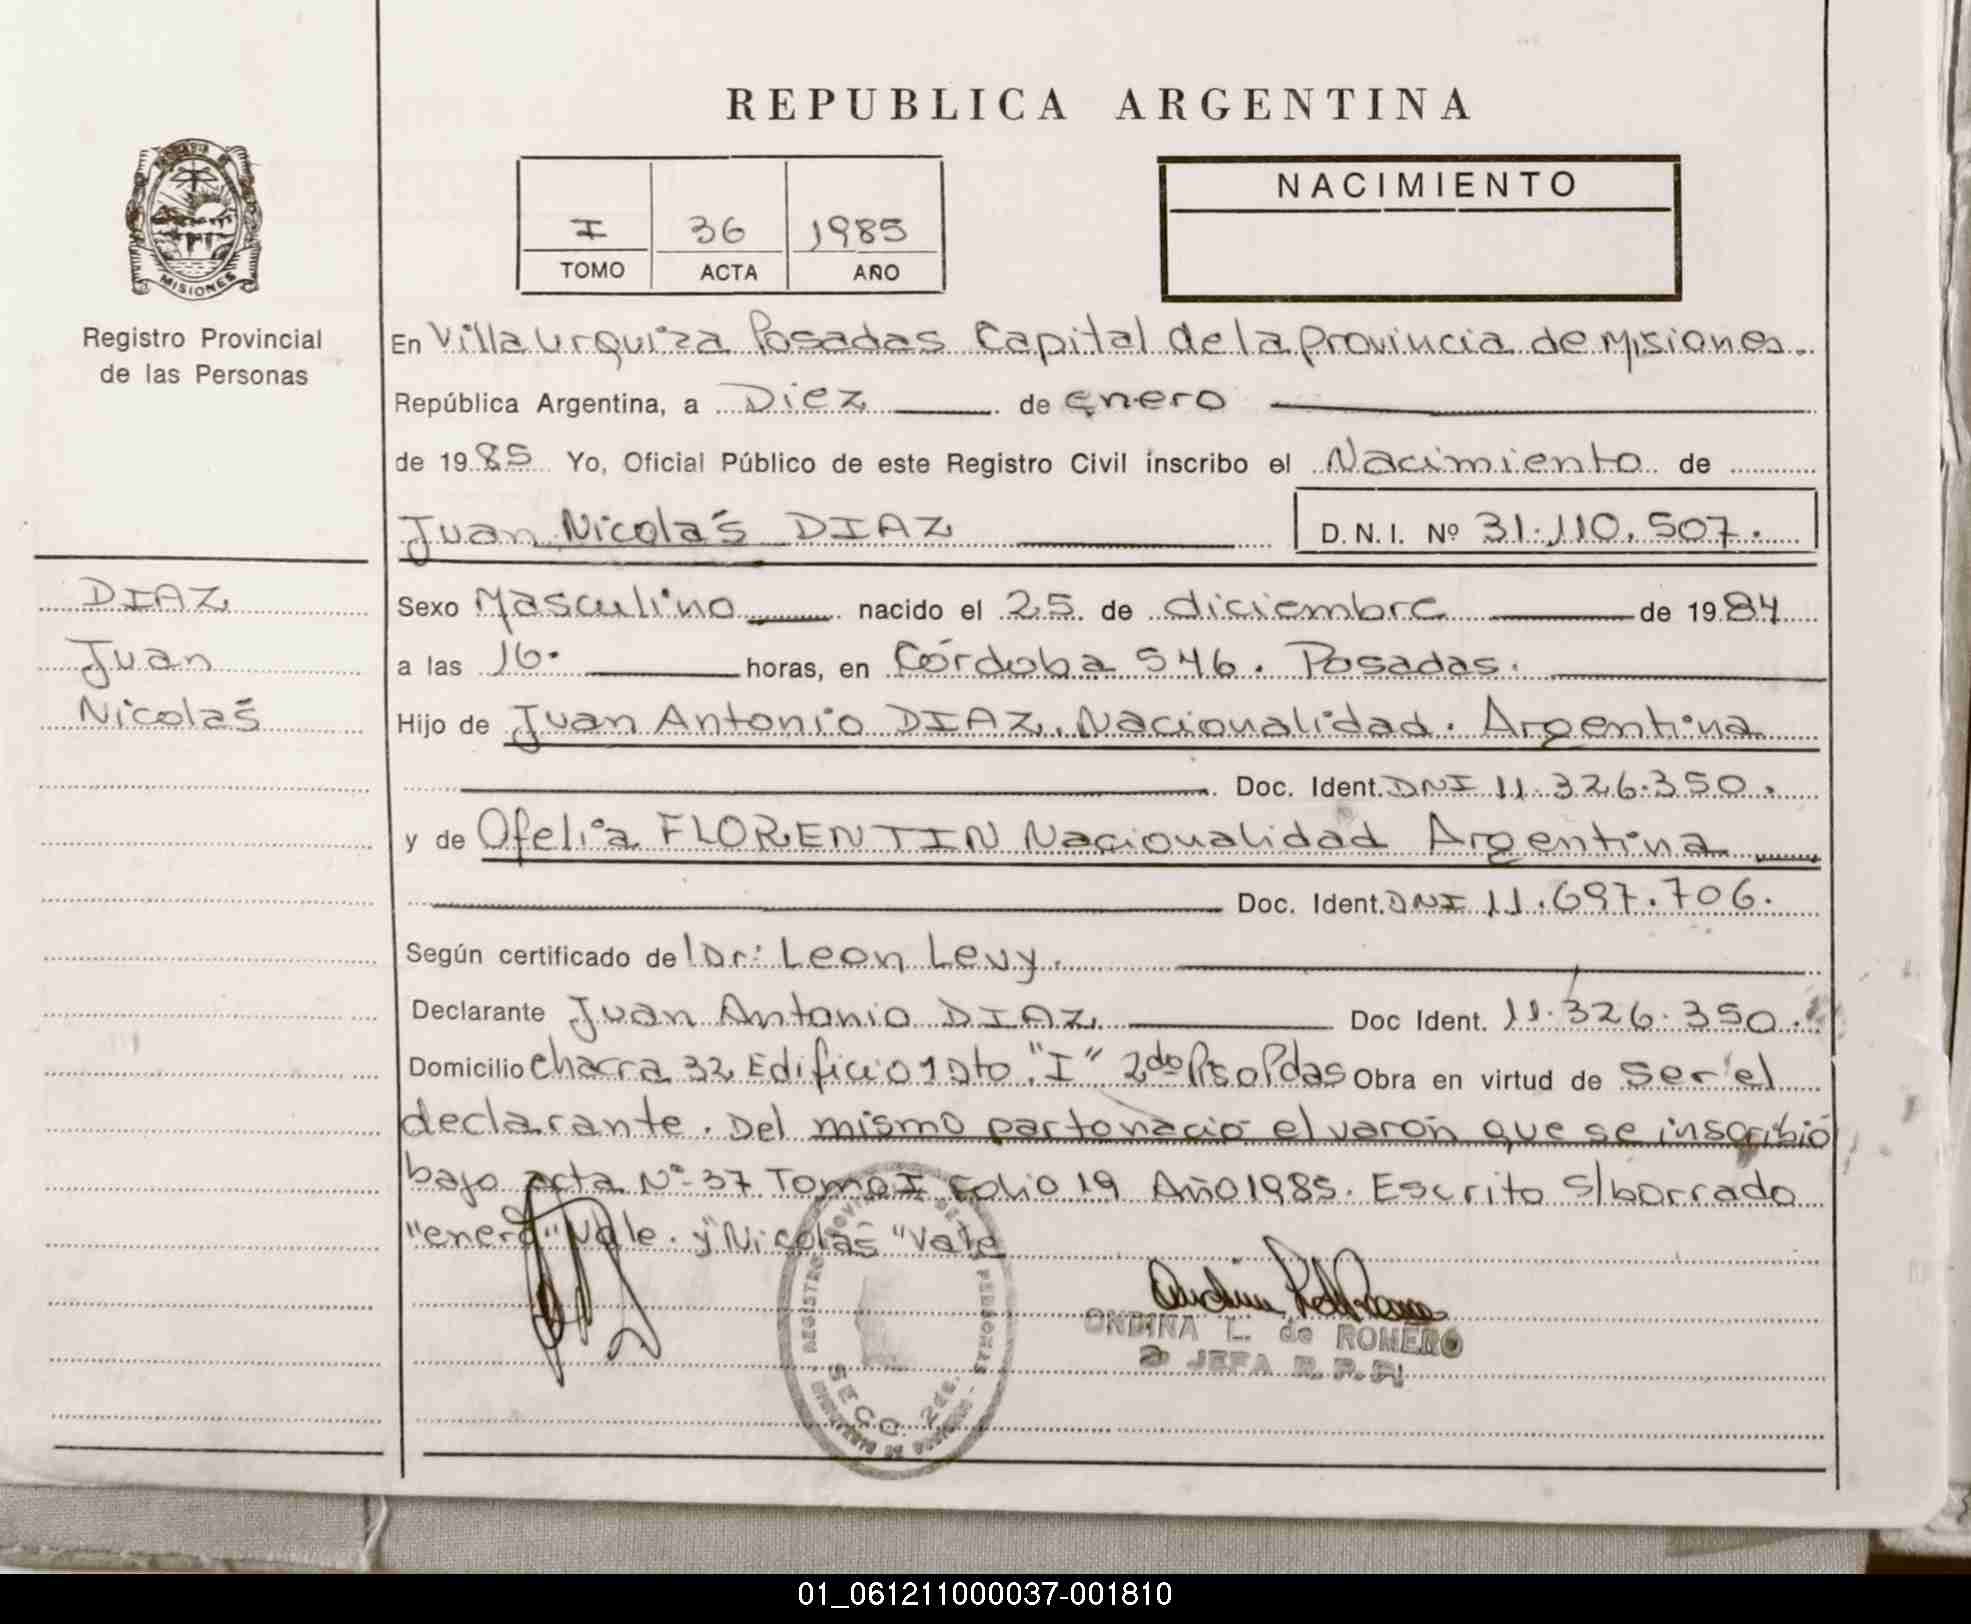 REPUBLICA ARGENTINA
MISIONES
Registro Provincial
de las Personas
I 36 1985
TOMO ACTA AÑO
NACIMIENTO
En Villa Urquiza Posadas Capital de la Provincia de Misiones.
República Argentina, a Diez de enero
de 1985 Yo, Oficial Público de este Registro Civil inscribo el Nacimiento de
Juan Nicolás DIAZ D.N.I. Nº 31.110.507.
DIAZ
Juan
Nicolás
Sexo Masculino nacido el 25 de diciembre de 1984
a las 16. horas, en Córdoba 546. Posadas.
Hijo de Juan Antonio DIAZ. Nacionalidad. Argentina
Doc. Ident. DNI 11.326.350.
y de Ofelia FLORENTIN Nacionalidad Argentina
Doc. Ident. DNI 11.697.706.
Según certificado de l Dr: Leon Levy.
Declarante Juan Antonio DIAZ. Doc Ident. 11.326.350.
Domicilio Chacra 32 Edificio 1 Dto "I" 2do Piso Pdas Obra en virtud de ser el
declarante. Del mismo parto nació el varón que se inscribió
bajo acta Nº 37 Tomo I Folio 19 Año 1985. Escrito S/borrado
"enero" Vale. y "Nicolás" Vale
REGISTRO PROVINCIAL DE LAS PERSONAS
SECC. 2da.
ONDINA L. de ROMERO
JEFA R.P.P.
01_061211000037-001810